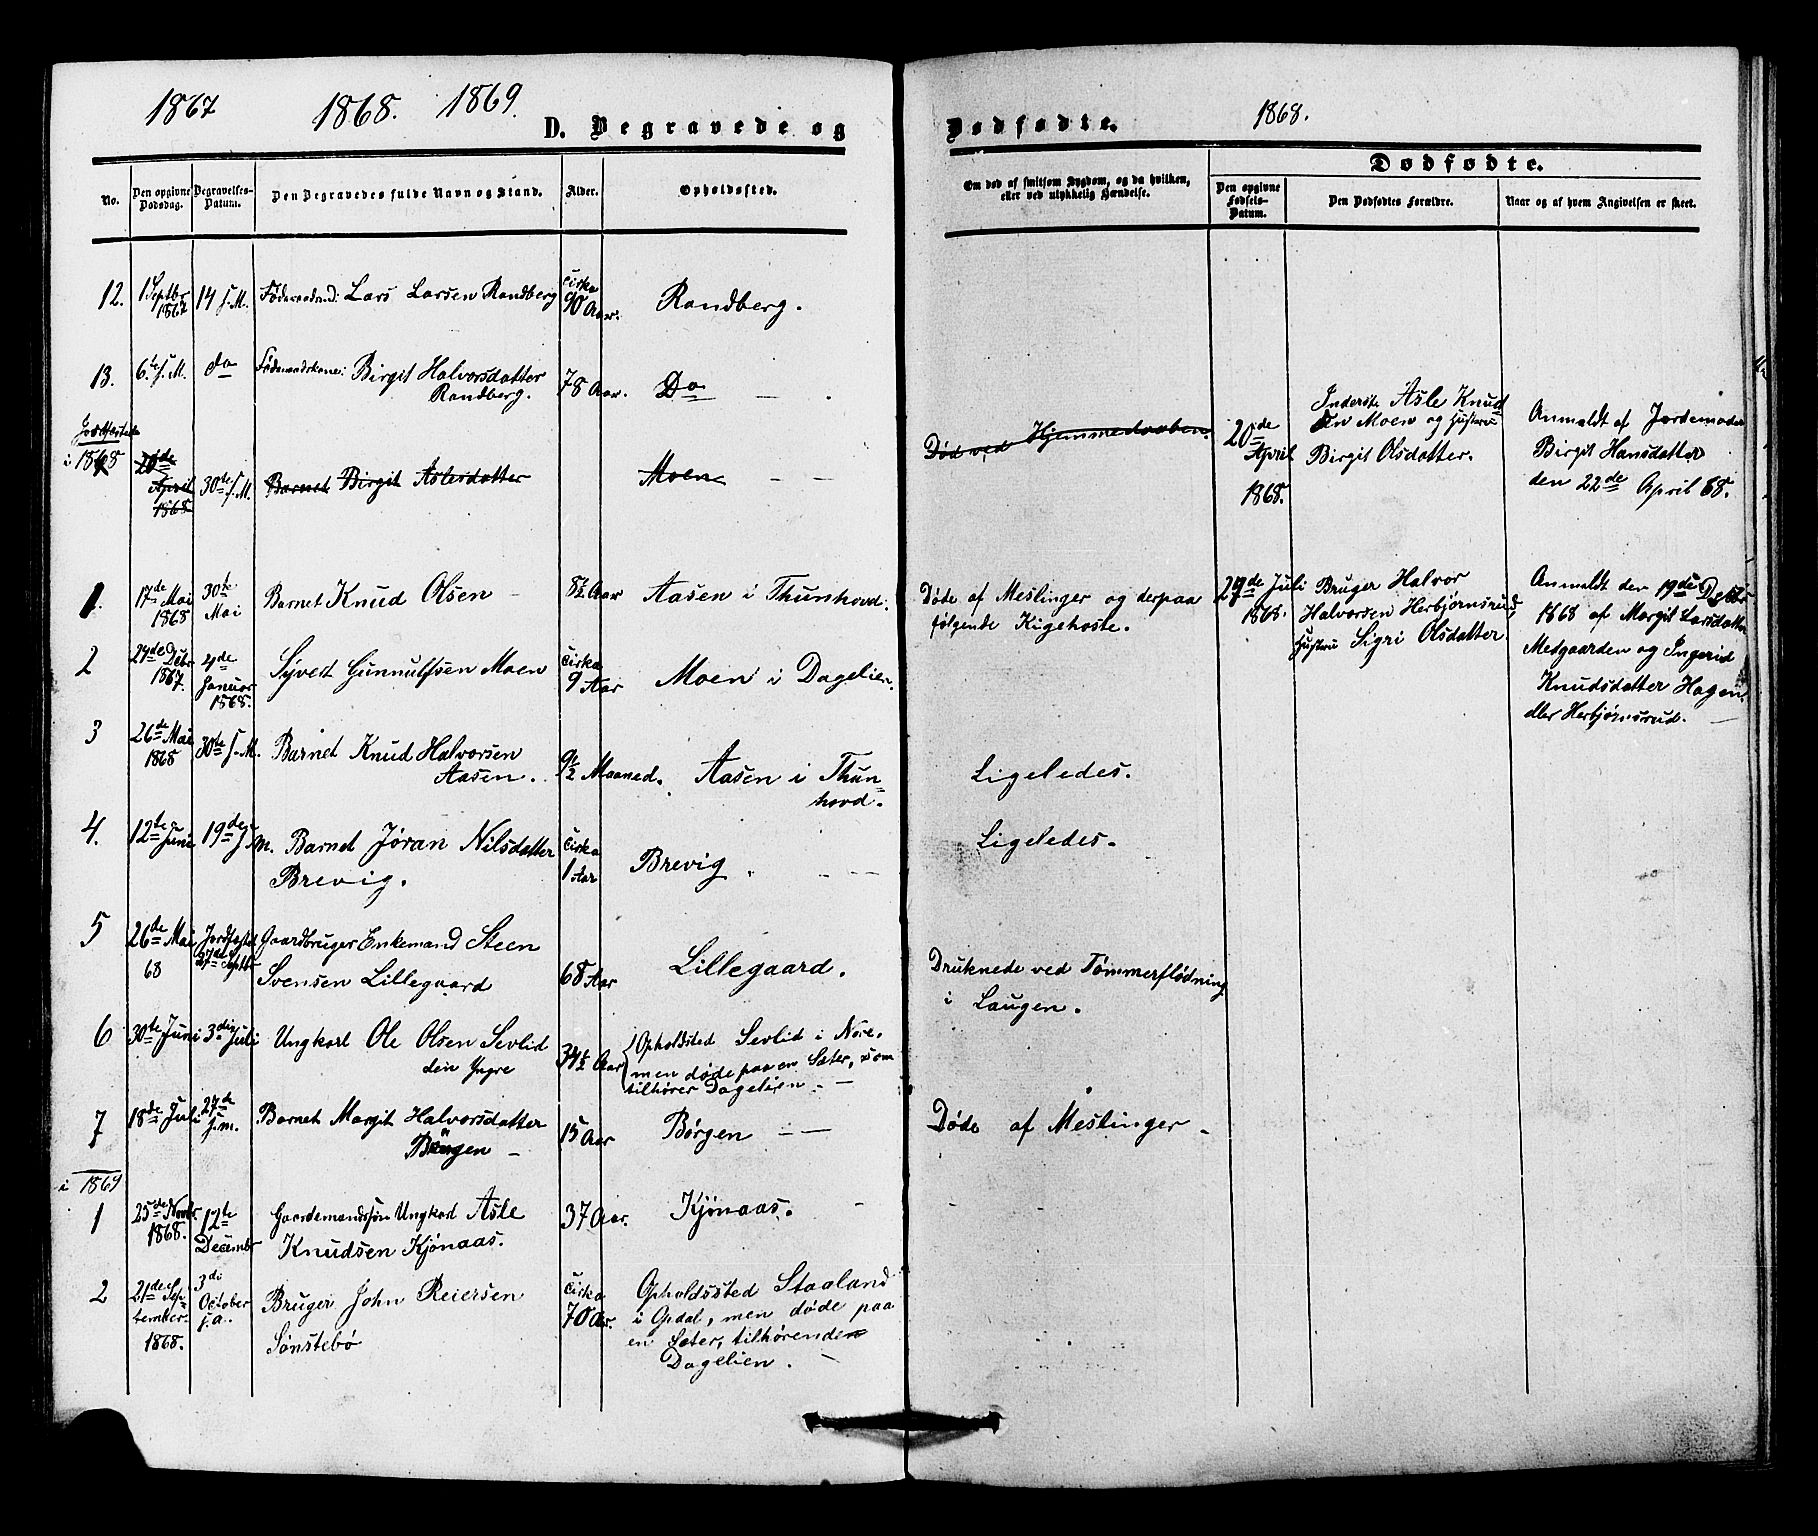 1867 1868. 1869.
D. Begravede og
No.
Den opgivne Dødsdag.
Begravelses-Datum.
Den Begravedes fulde Navn og Stand.
Alder.
Opholdssted.
12.
1 Septbr 1867
14 s. M.
Føderaadsmd: Lars Larsen Randberg
cirka 90 Aar.
Randberg.
13.
6te s. M.
do
Føderaadskone: Birgit Halvorsdatter
Randberg.
78 Aar.
Do — .
Jordfæstede
i 1868
20de April 1868
30te s. M.
Barnet Birgit Aslesdatter
Moen — —
1.
17de Mai 1868
30te Mai
Barnet Knud Olsen —
8½ Aar
Aasen i Thunhovd.
2
24de Debr 1867.
4de Januar 1868.
Syvert Gunnulfsen Moen
cirka 9 Aar
Moen i Dagelien.
3
26de Mai 1868
30te s. M.
Barnet Knud Halvorsen
Aasen.
9½ Maaned.
Aasen i Thun-
hovd.
4.
12te Juni
19de s. M.
Barnet Jøran Nilsdatter
Brevig.
cirka 1 Aar
Brevig. — — —
5
26de Mai 68
Jordfæstet 27de Septbr
Gaardbruger Enkemand Steen
Svensen Lillegaard
68 Aar
Lillegaard.
6
30te Juni
3die Juli
Ungkarl Ole Olsen Sevlid
den Yngre
34½ Aar
Opholdsted Sevlid i Nore,
men døde paa en Sæter, som
tilhører Dagelien. —
7
18de Juli
27de s. m.
Barnet Margit Halvorsdatter
Børgen —
15 Aar
Børgen — —
i 1869
1
25de Novbr. 1868.
12te Decembr
Gaardmandssøn Ungkarl Asle
Knudsen Kjønaas.
37 Aar.
Kjønaas. —
2
21de Sep-
tember
1868.
3di October s. a.
Bruger John Reiersen
Sønstebø
cirka 70 Aar.
Opholdssted Staaland
i Opdal, men døde paa
en Sæter, tilhørende
Dagelien. —
Dødfødte.
1868.
Om død af smitsom Sygdom, og da hvilken,
eller ved ulykkelig Hændelse.
Dødfødte.
Den opgivne Fødsels-Datum.
Den Dødfødtes Forældre.
Naar og af hvem Angivelsen er skeet.
Død ved Hjemmedaaben.
20de April 1868.
Inderste Asle Knud
sen Moen og Hustru
Birgit Olsdatter.
Anmeldt af Jordemoder
Birgit Hansdatter
den 22de April 68.
Døde af Meslinger og derpaa
følgende Kighoste.
29de Juli 1868.
Bruger Halvor
Halvorsen Herbjørnsrud
Hustru Sigri Olsdatter
Anmeldt den 19de Debr
1868 af Margit Larsdatter
Medgaarden og Ingerid
Knudsdatter Hagen
eller Herbjørnsrud. —
Ligeledes.
Ligeledes.
Druknede ved Tømmerflødning
i Laugen.
Døde af Meslinger —